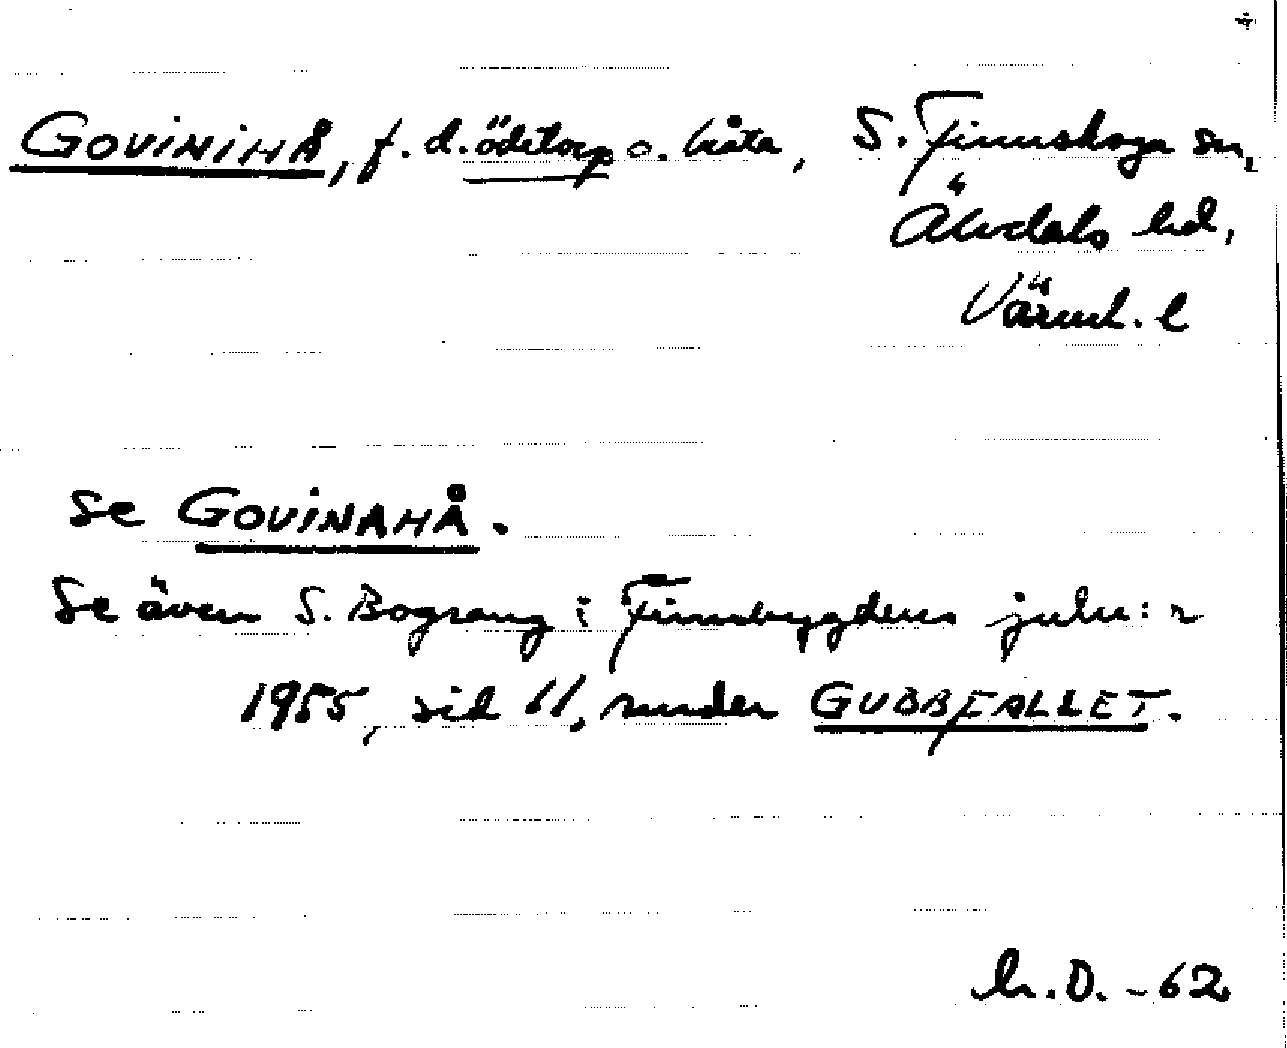 GOVINIHÅ, f.d. ödetorp o. låta, S. Finnskoga sn,
Älvdals hd,
Värml. l
Se GOVINAHÅ.
Se även S. Bograng i Finnbygdens juln:r
1955, sid 11, under GUBBFALLET.
h.O. -62